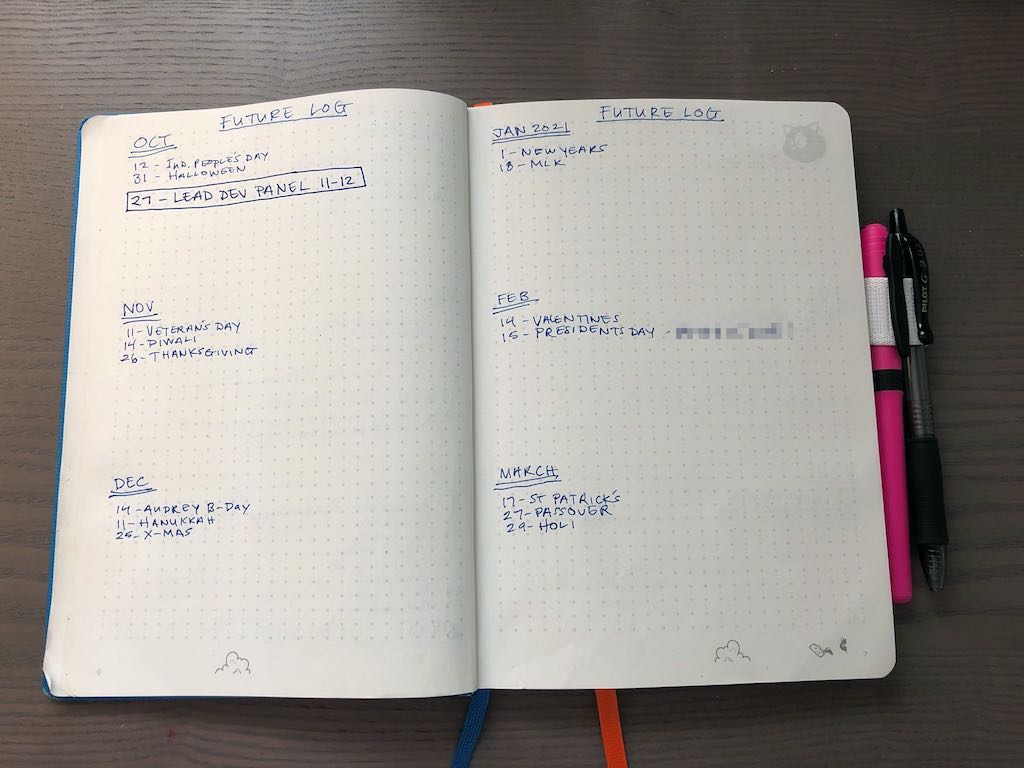 FUTURE LOG
OCT
12 - IND. PEOPLE'S DAY
31 - HALLOWEEN
27 - LEAD DEV PANEL 11-12
NOV
11 - VETERAN'S DAY
14 - DIWALI
26 - THANKSGIVING
DEC
14 - AUDREY B-DAY
11 - HANUKKAH
25 - X-MAS
6
FUTURE LOG
JAN 2021
1 - NEW YEARS
18 - MLK
FEB
14 - VALENTINES
15 - PRESIDENTS DAY -
MARCH
17 - ST PATRICK'S
27 - PASSOVER
29 - HOLI
7
PILOT G-2